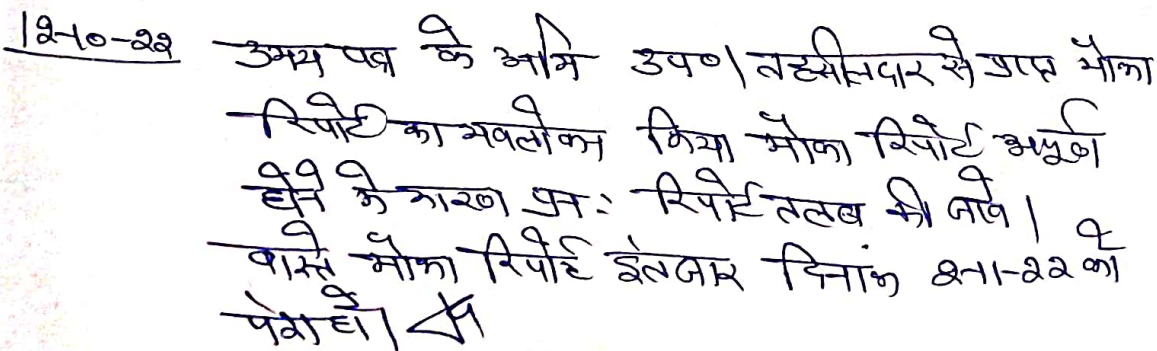 12-10-22 उभय पक्ष के अभि उप०। तहसीलदार से प्राप्त मौका
रिपोर्ट का अवलोकन किया मौका रिपोर्ट अपूर्ण
होने के कारण पुनः रिपोर्ट तलब की जावे।
वास्ते मौका रिपोर्ट इंतजार दिनांक 2-11-22 को
पेश हो।